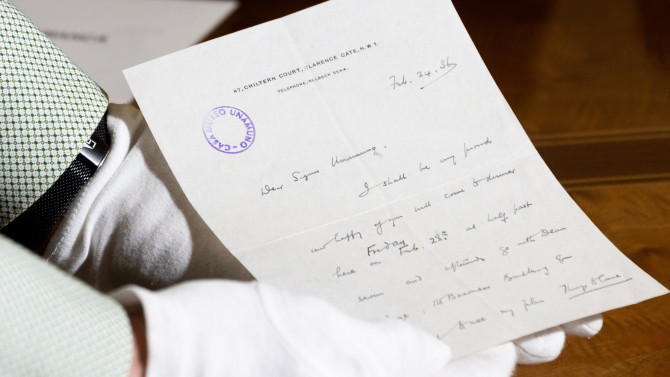 47, CHILTERN COURT, CLARENCE GATE, N.W.1.
TELEPHONE,
Feb. 24. 36
CASA MUSEO UNAMUNO
Dear Signor Unamuno.
I shall be very proud
and happy if you will come to dinner
here on Friday Feb. 28th at half past
seven and afterwards go with
the
see my film Things to Come